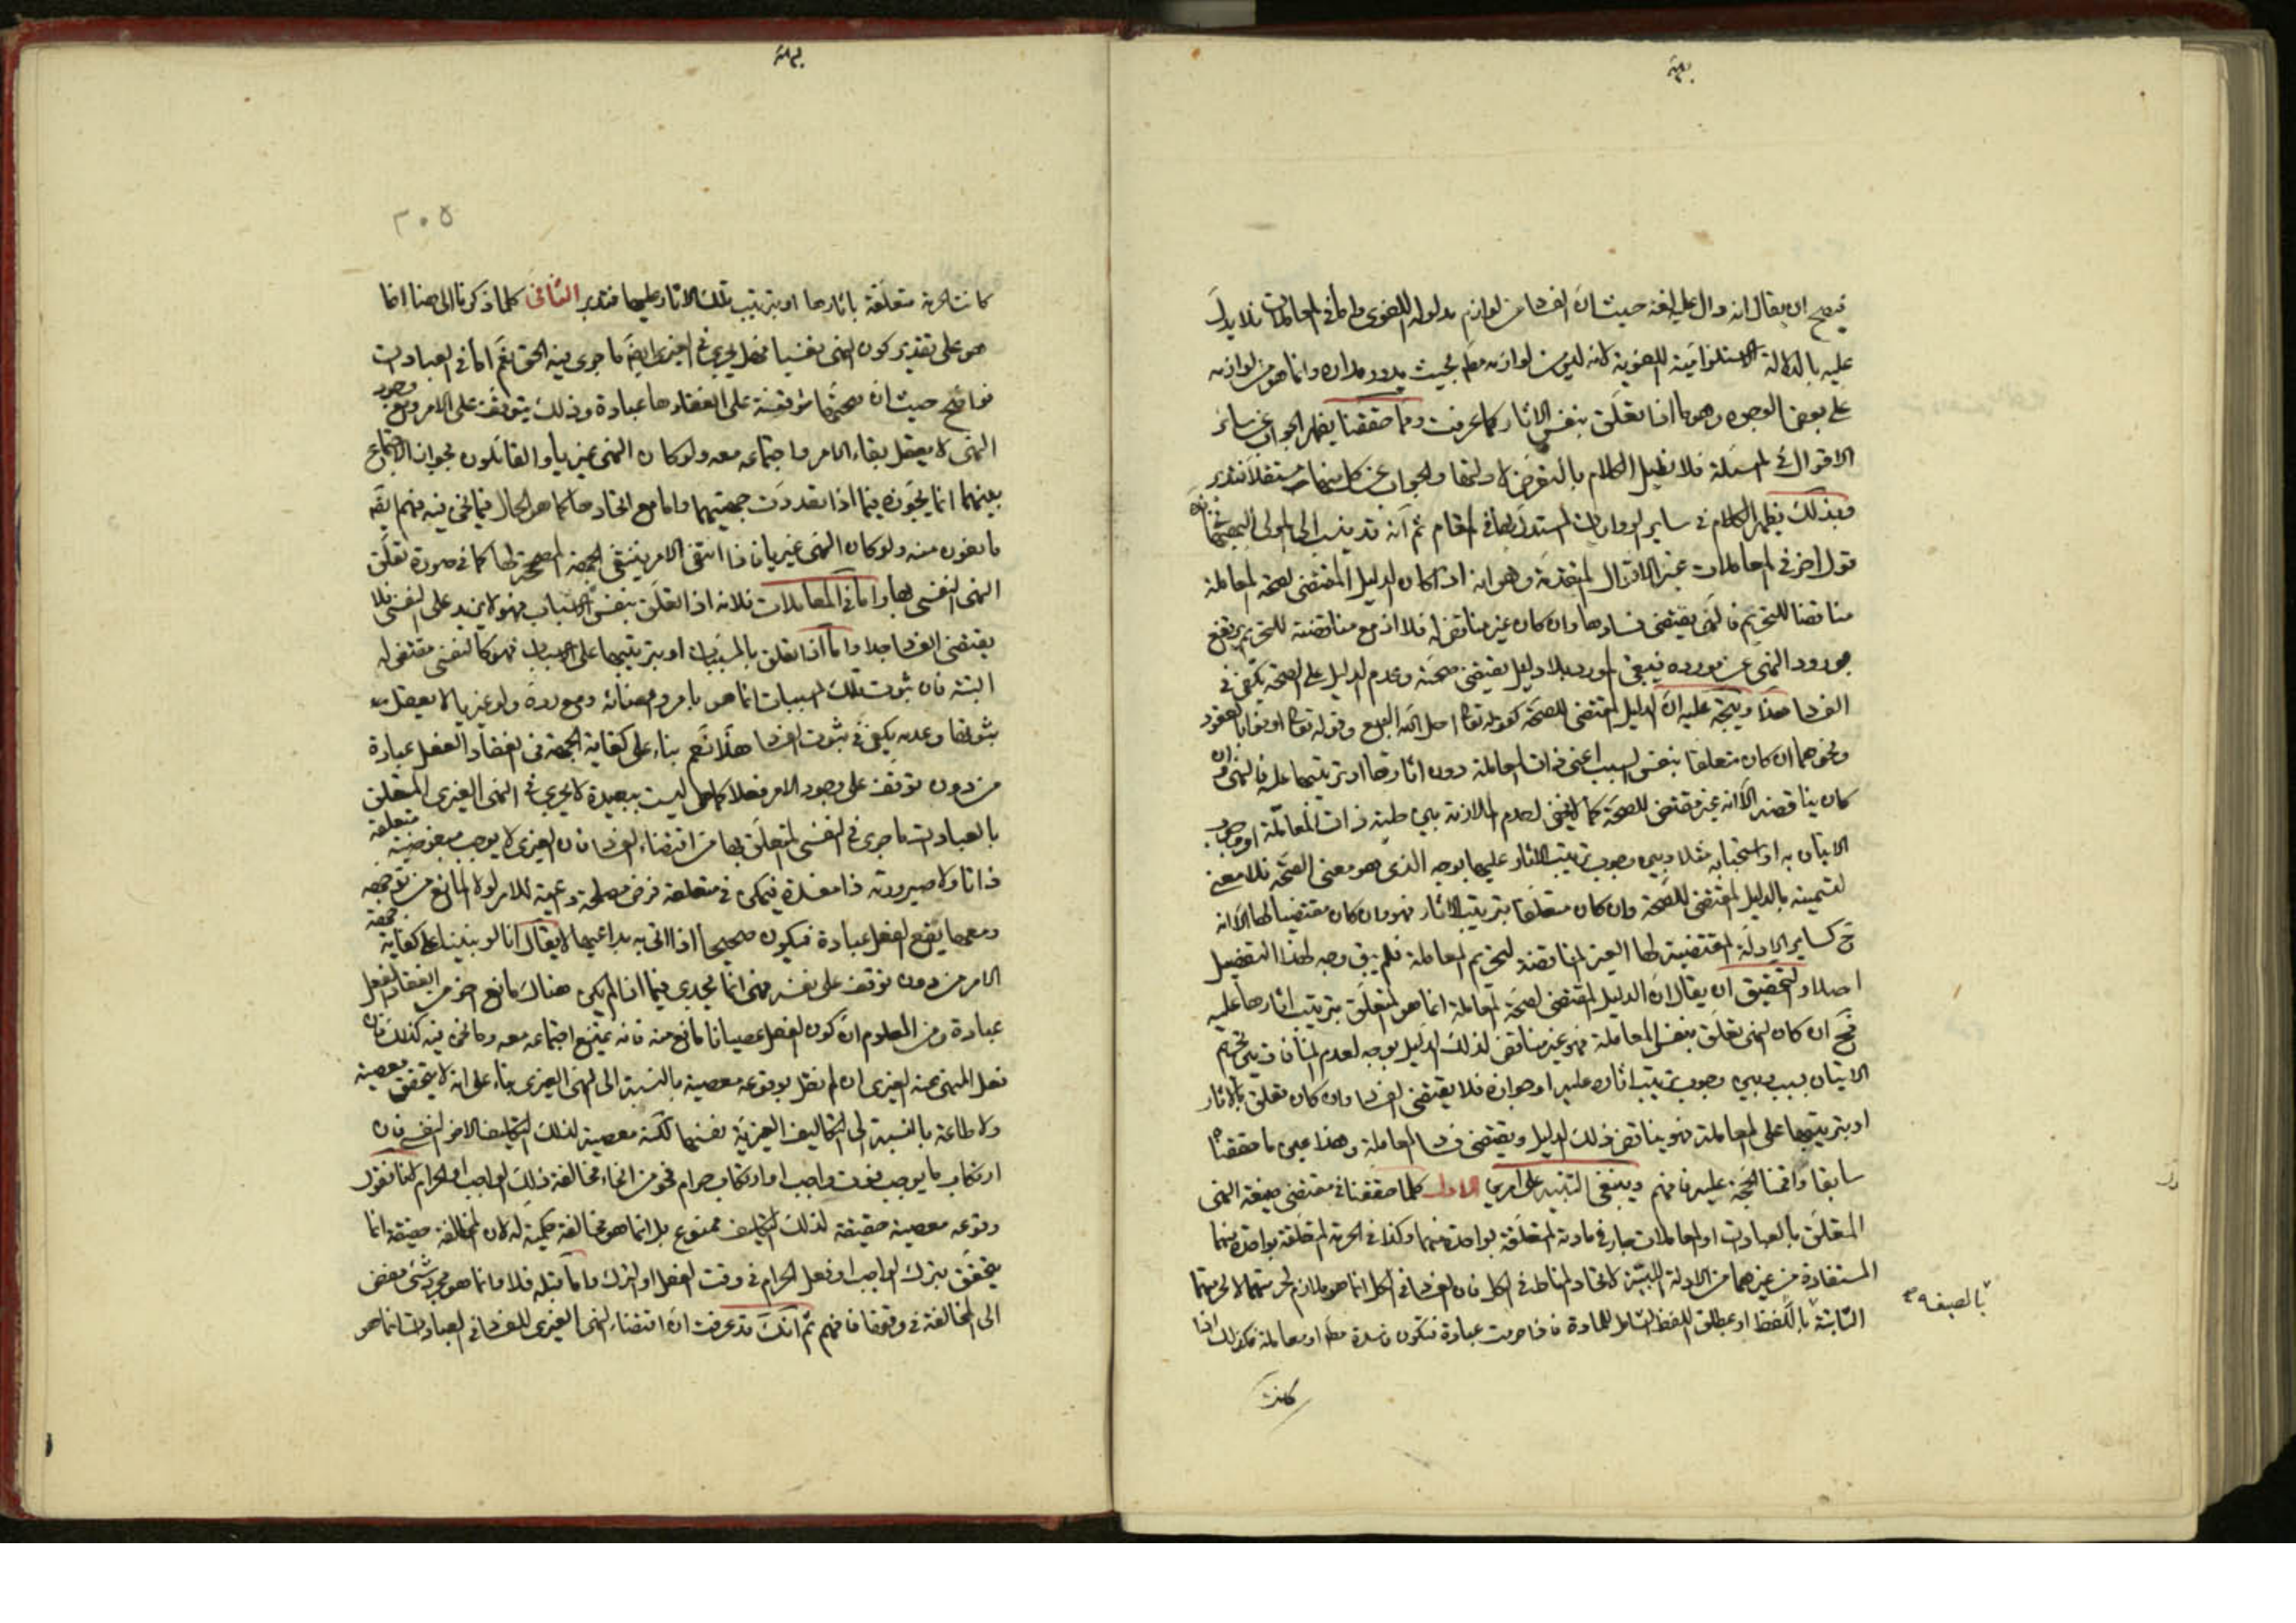 فيصح ان يقال انه دال عليه لغة حيث ان الفساد من لوازم مدلوله اللغوى واما فى المعاملات فلا يدل
عليه بالدلالة الالتزامية اللغوية لانه ليس من لوازمه مطلقا بحيث يدور مداره وانما هو من لوازمه
على بعض الوجوه وهو ما اذا تعلق بنفس الاثار كما عرفت ومما حققنا يظهر الجواب عن سائر
الاقوال فى المسئلة فلا نطيل الكلام بالتعرض لادلتها والجواب عن كل منها مستقلا فتدبر
وبذلك يظهر الكلام فى ساير الروايات المستدل بها فى المقام ثم انه قد ينسب الى المولى البهبهانى
قول اخر فى المعاملات غير الاقوال المتقدمة وهو انه اذا كان الدليل المقتضى لصحة المعاملة
مناقضا للتحريم فالنهى يقتضى فسادها وان كان غير مناقض له فلا اذ مع مناقضته للتحريم يرتفع
بورود النهى عن مورده فيبقى المورد بلا دليل يقتضى صحته وعدم الدليل على الصحة يكفى فى
الفساد هذا ويتجه عليه ان الدليل المقتضى للصحة كقوله تعالى احل الله البيع وقوله تعالى اوفوا بالعقود
ونحوهما ان كان متعلقا بنفس السبب اعنى ذات المعاملة دون اثارها او ترتيبها عليه فالنهى وان
كان يناقضه الا انه غير مقتضى للصحة كما لا يخفى لعدم الملازمة بين حلية ذات المعاملة او وجوب
الاتيان به او استحبابه مثلا وبين وجوب ترتيب الاثار عليهما بوجه الذى هو معنى الصحة فلا معنى
لتسميته بالدليل المقتضى للصحة وان كان متعلقا بترتيب الاثار فهو وان كان مقتضيا لها الا انه
ح كساير الادلة المقتضية لها الغير المناقضة لتحريم المعاملة فلم يبق وجه لهذا التفصيل
اصلا والتحقيق ان يقال ان الدليل المقتضى لصحة المعاملة انما هو المتعلق بترتيب اثارها عليه
فح ان كان النهى تعلق بنفس المعاملة فهو غير مناقض لذلك الدليل بوجه لعدم المنافات بين تحريم
الاتيان بسبب وبين وجوب ترتيب اثاره عليه او جوازه فلا يقتضى الفساد وان كان تعلق بالاثار
او بترتيبها على المعاملة فهو يناقض ذلك الدليل ويقتضى فساد المعاملة وهذا عين ما حققنا
سابقا واقمنا الحجة عليه فافهم وينبغى التنبيه على امرين الاول كلما حققنا فى مقتضى صيغة النهى
المتعلق بالعبادات او المعاملات جار فى مادته المتعلقة بواحدة منهما وكذا فى الحرمة المتعلقة بواحدة منهما
المستفادة من غيرهما من الادلة اللبية لاتحاد المناط فى الكل فان الفساد فى الكل انما هو ملازم لحرمتهما لا لحرمتهما
الثابتة باللفظ او بمطلق اللفظ الشامل للمادة فاذا حرمت عبادة فتكون فاسدة مطلقا او معاملة فكذلك اذا
بالصيغة
كانت
٢٠٥
كانت الحرمة متعلقة باثارها او بترتيب تلك الاثار عليها فتدبر الثانى كلما ذكرنا الى هنا انما
هو على تقدير كون النهى نفسيا فهل يجرى فى الغيرى ايضا ما جرى فيه الحق نعم اما فى العبادات
فواضح حيث ان صحتها متوقفة على انعقادها عبادة وذلك يتوقف على الامر ومع وجود
النهى لا يعقل بقاء الامر واجتماعه معه ولو كان النهى غيريا والقائلون بجواز الاجتماع
بينهما انما يجوزه فيما اذا تعددت جهتيهما واما مع اتحادها كما هو الحال فيما نحن فيه فهم ايضا
مانعون منه ولو كان النهى غيريا فاذا انتفى الامر ينتفى الجهة المصححة لها كما فى صورة تعلق
النهى النفسى بها واما فى المعاملات فلانه اذا تعلق بنفس الاسباب فهو لا يزيد على النفسى فلا
يقتضى الفساد جدا واما اذا تعلق بالمسببات او بترتيبها على الاسباب فهو كالنفسى مقتض له
البتة فان ثبوت تلك المسببات انما هو بامر وامضائه ومع ردعه ولو غيريا لا يعقل
ثبوتها وعدمه يكفى فى ثبوت الفساد هذا نعم بناء على كفاية الجهة فى انعقاد الفعل عبادة
من دون توقف على وجود الامر فعلا كما هى ليست ببعيدة لا يجرى فى النهى الغيرى المتعلق
بالعبادات ما جرى فى النفسى المتعلق بها من اقتضاء الفساد فان الغيرى لا يوجب مبغوضية متعلقه
ذاتا ولا صيرورته ذا مفسدة فيمكن فى متعلقه فرض مصلحة داعية للامر لولا المانع من توجهه
ومعها يقع الفعل عبادة فيكون صحيحا اذا اتى به بداعيها لا يقال انا لو بنينا على كفاية جهة
الامر من دون توقف على نفسه فهى انما يجدى فيما اذا لم يكن هناك مانع اخر من انعقاد الفعل
عبادة ومن المعلوم ان كون الفعل عصيانا مانع منه فانه يمتنع اجتماعه معه وما نحن فيه كذلك فان
فعل المنهى عنه الغيرى ان لم نقل بوقوعه معصية بالنسبة الى النهى الغيرى بناء على انه لا يتحقق معصية
ولا طاعة بالنسبة الى التكاليف الغيرية نفسها لكنه معصية لذلك التكليف الاخر النفسى فان
ارتكاب ما يوجب فوت واجب او ارتكاب حرام نحو من انحاء مخالفة ذلك الواجب او الحرام لانا نقول
وقوعه معصية حقيقة لذلك التكليف ممنوع بل انما هو مخالفة حكمية له لان المخالفة حقيقة انما
يتحقق بترك الواجب او فعل الحرام فى وقت الفعل او الترك واما قبله فلا وانما هو مجرد شىء مفض
الى المخالفة فى وقتها فافهم ثم انك قد عرفت ان اقتضاء النهى الغيرى للفساد فى العبادات انما هو